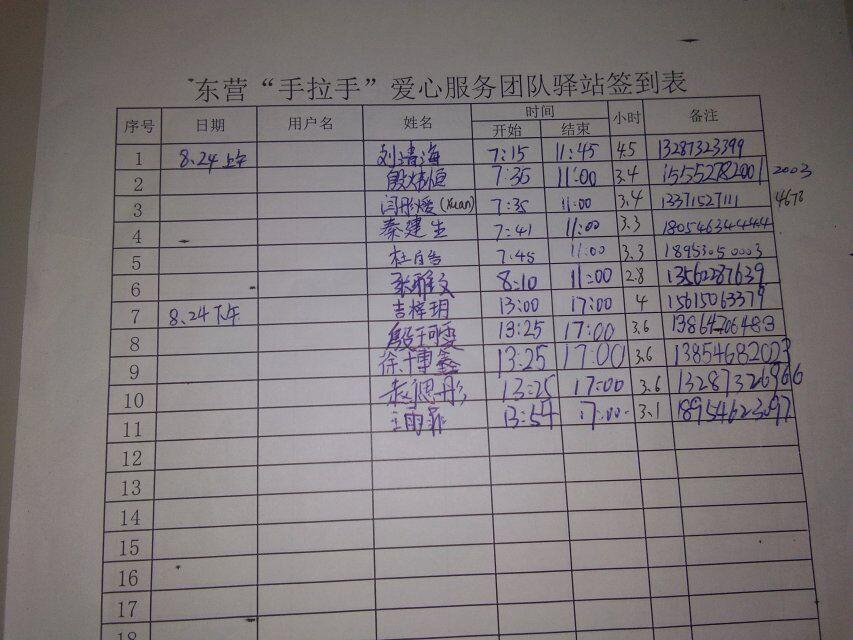 东营“手拉手”爱心服务团队驿站签到表
序号 日期 用户名 姓名 时间 小时 备注
开始 结束
1 8.24上午 刘清海 7:15 11:45 4.5 13287323399
2 殷炜恒 7:35 11:00 3.4 155552782001 2003
3 闫彤煖(xuan) 7:35 11:00 3.4 13371527111 4678
4 秦建生 7:41 11:00 3.3 18054634444
5 7:45 11:00 3.3 18953050003
6 张雅文 8:10 11:00 2.8 13562287639
7 8.24下午 吉梓玥 13:00 17:00 4 15615063379
8 13:25 17:00 3.6 13864706483
9 徐博鑫 13:25 17:00 3.6 13854682023
10 13:25 17:00 3.6 13287326966
11 王雨菲 13:54 17:00 3.1 18954623097
12
13
14
15
16
17
18